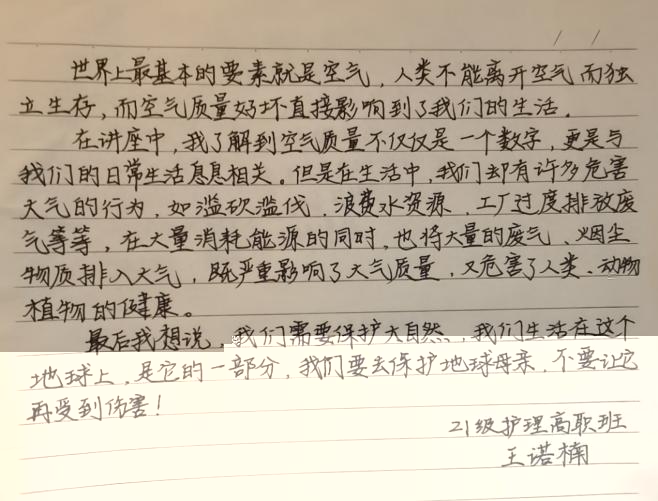 世界上最基本的要素就是空气，人类不能离开空气而独
立生存，而空气质量好坏直接影响到了我们的生活。
在讲座中，我了解到空气质量不仅仅是一个数字，更是与
我们的日常生活息息相关。但是在生活中，我们却有许多危害
大气的行为，如滥砍滥伐、浪费水资源、工厂过度排放废
气等等，在大量消耗能源的同时，也将大量的废气、烟尘
物质排入大气，既严重影响了大气质量，又危害了人类、动物
植物的健康。
最后我想说，我们需要保护大自然，我们生活在这个
地球上，是它的一部分，我们要去保护地球母亲，不要让它
再受到伤害！
21级护理高职班
王诺楠